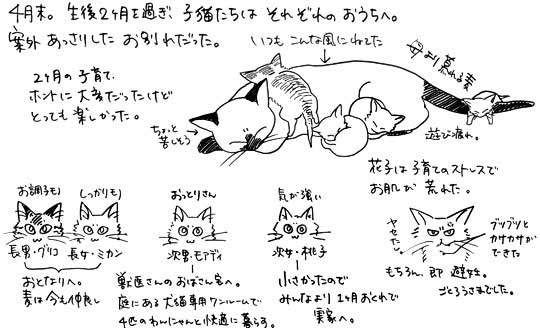 4月末。生後2ヶ月を過ぎ、子猫たちは それぞれの おうちへ。
案外 あっさりした お別れだった。
いつも こんな風にねてた
2ヶ月の子育て、
ホントに大変だったけど
とっても楽しかった。
ちょっと
苦しそう
母より荒れる麦
遊び疲れ。
花子は子育てのストレスで
お肌が荒れた。
お調子モノ
長男・グリコ
しっかりモノ
長女・ミカン
おとなりへ。
麦は今も仲良し
おっとりさん
次男・モアディ
獣医さんのおばさん宅へ。
庭にある犬猫専用ワンルームで
4匹のわんにゃんと快適に暮らす。
気が強い
次女・桃子
小さかったので
みんなより1ヶ月おくれで
実家へ。
ヤセた。
ブツブツと
カサカサが
できた
もちろん、即 避妊。
ごくろうさまでした。